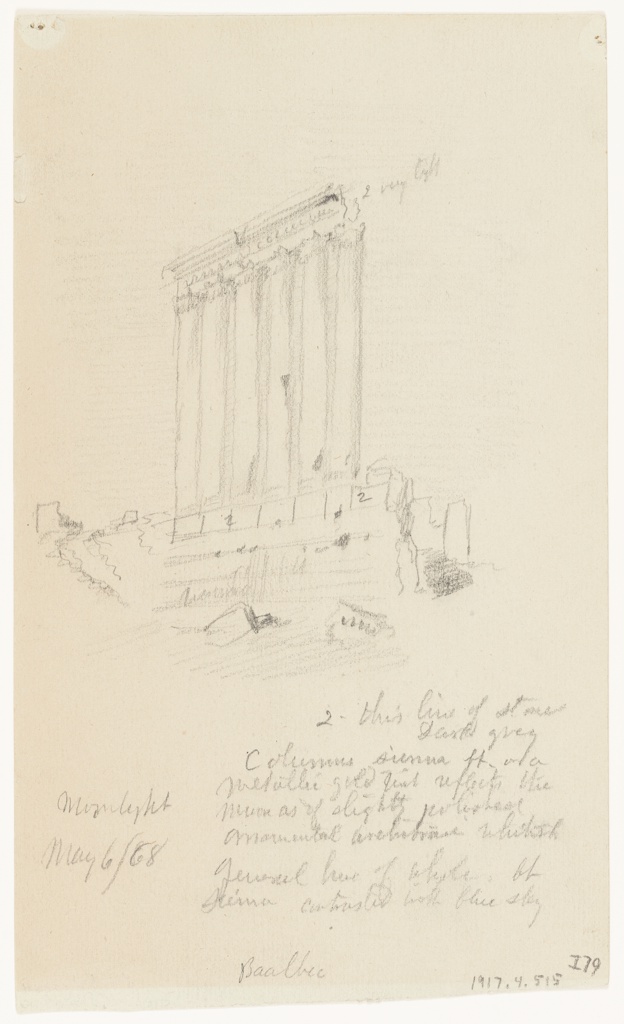 2 very light
2
2
2 - this line of stone
dark grey
Columns sienna lt. on a
metallic gold tint reflects the
moon as if slightly polished
ornamental architrave whitish
general hue of whole. bt
Sienna contrasted with blue sky
Moonlight
May 6/68
Baalbec
1917.4.515
I79